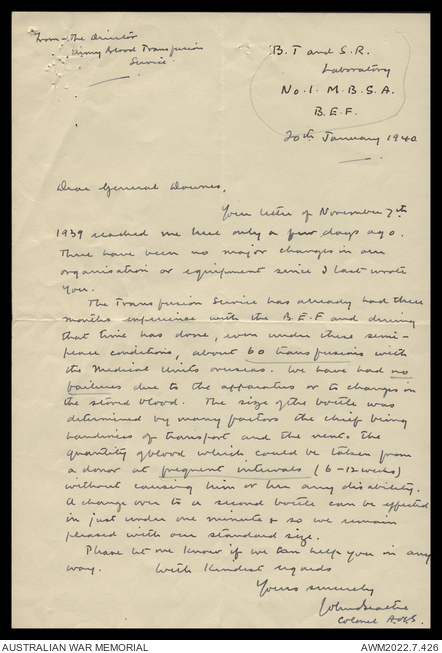 From - The Director
Army Blood Transfusion
Service
B.T and S.R.
Laboratory
No.1. M.B.S.A.
B.E.F.
20th January 1940
Dear General Downes,
Your letter of November 7th
1939 reached me here only a few days ago.
There have been no major changes in our
organisation or equipment since I last wrote
you.
The Transfusion Service has already had three
months experience with the B.E.F and during
that time has done, even under these semi-
peace conditions, about 60 transfusions with
the Medical Units overseas. We have had no
failures due to the apparatus or to changes in
the stored blood. The size of the bottle was
determined by many factors the chief being
handiness of transport and the next the
quantity of blood which could be taken from
a donor at frequent intervals (6-12 weeks)
without causing him or her any disability.
A change over to a second bottle can be effected
in just under one minute & so we remain
pleased with our standard size.
Please let me know if we can help you in any
way. With Kindest regards
Yours sincerely
Colonel
AUSTRALIAN WAR MEMORIAL
AWM2022.7.426